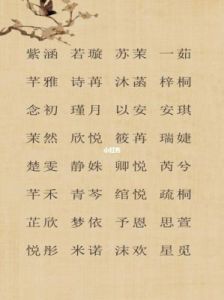 紫涵 若璇 苏茉 一茹
芊雅 诗苒 沐菡 梓桐
念初 瑾月 以安 安琪
茉然 欣悦 筱苒 瑞婕
楚雯 静姝 卿悦 芮兮
芊禾 青芩 绾悦 疏桐
芷欣 梦依 予恩 思萱
悦彤 米诺 沫欢 星觅
小红书